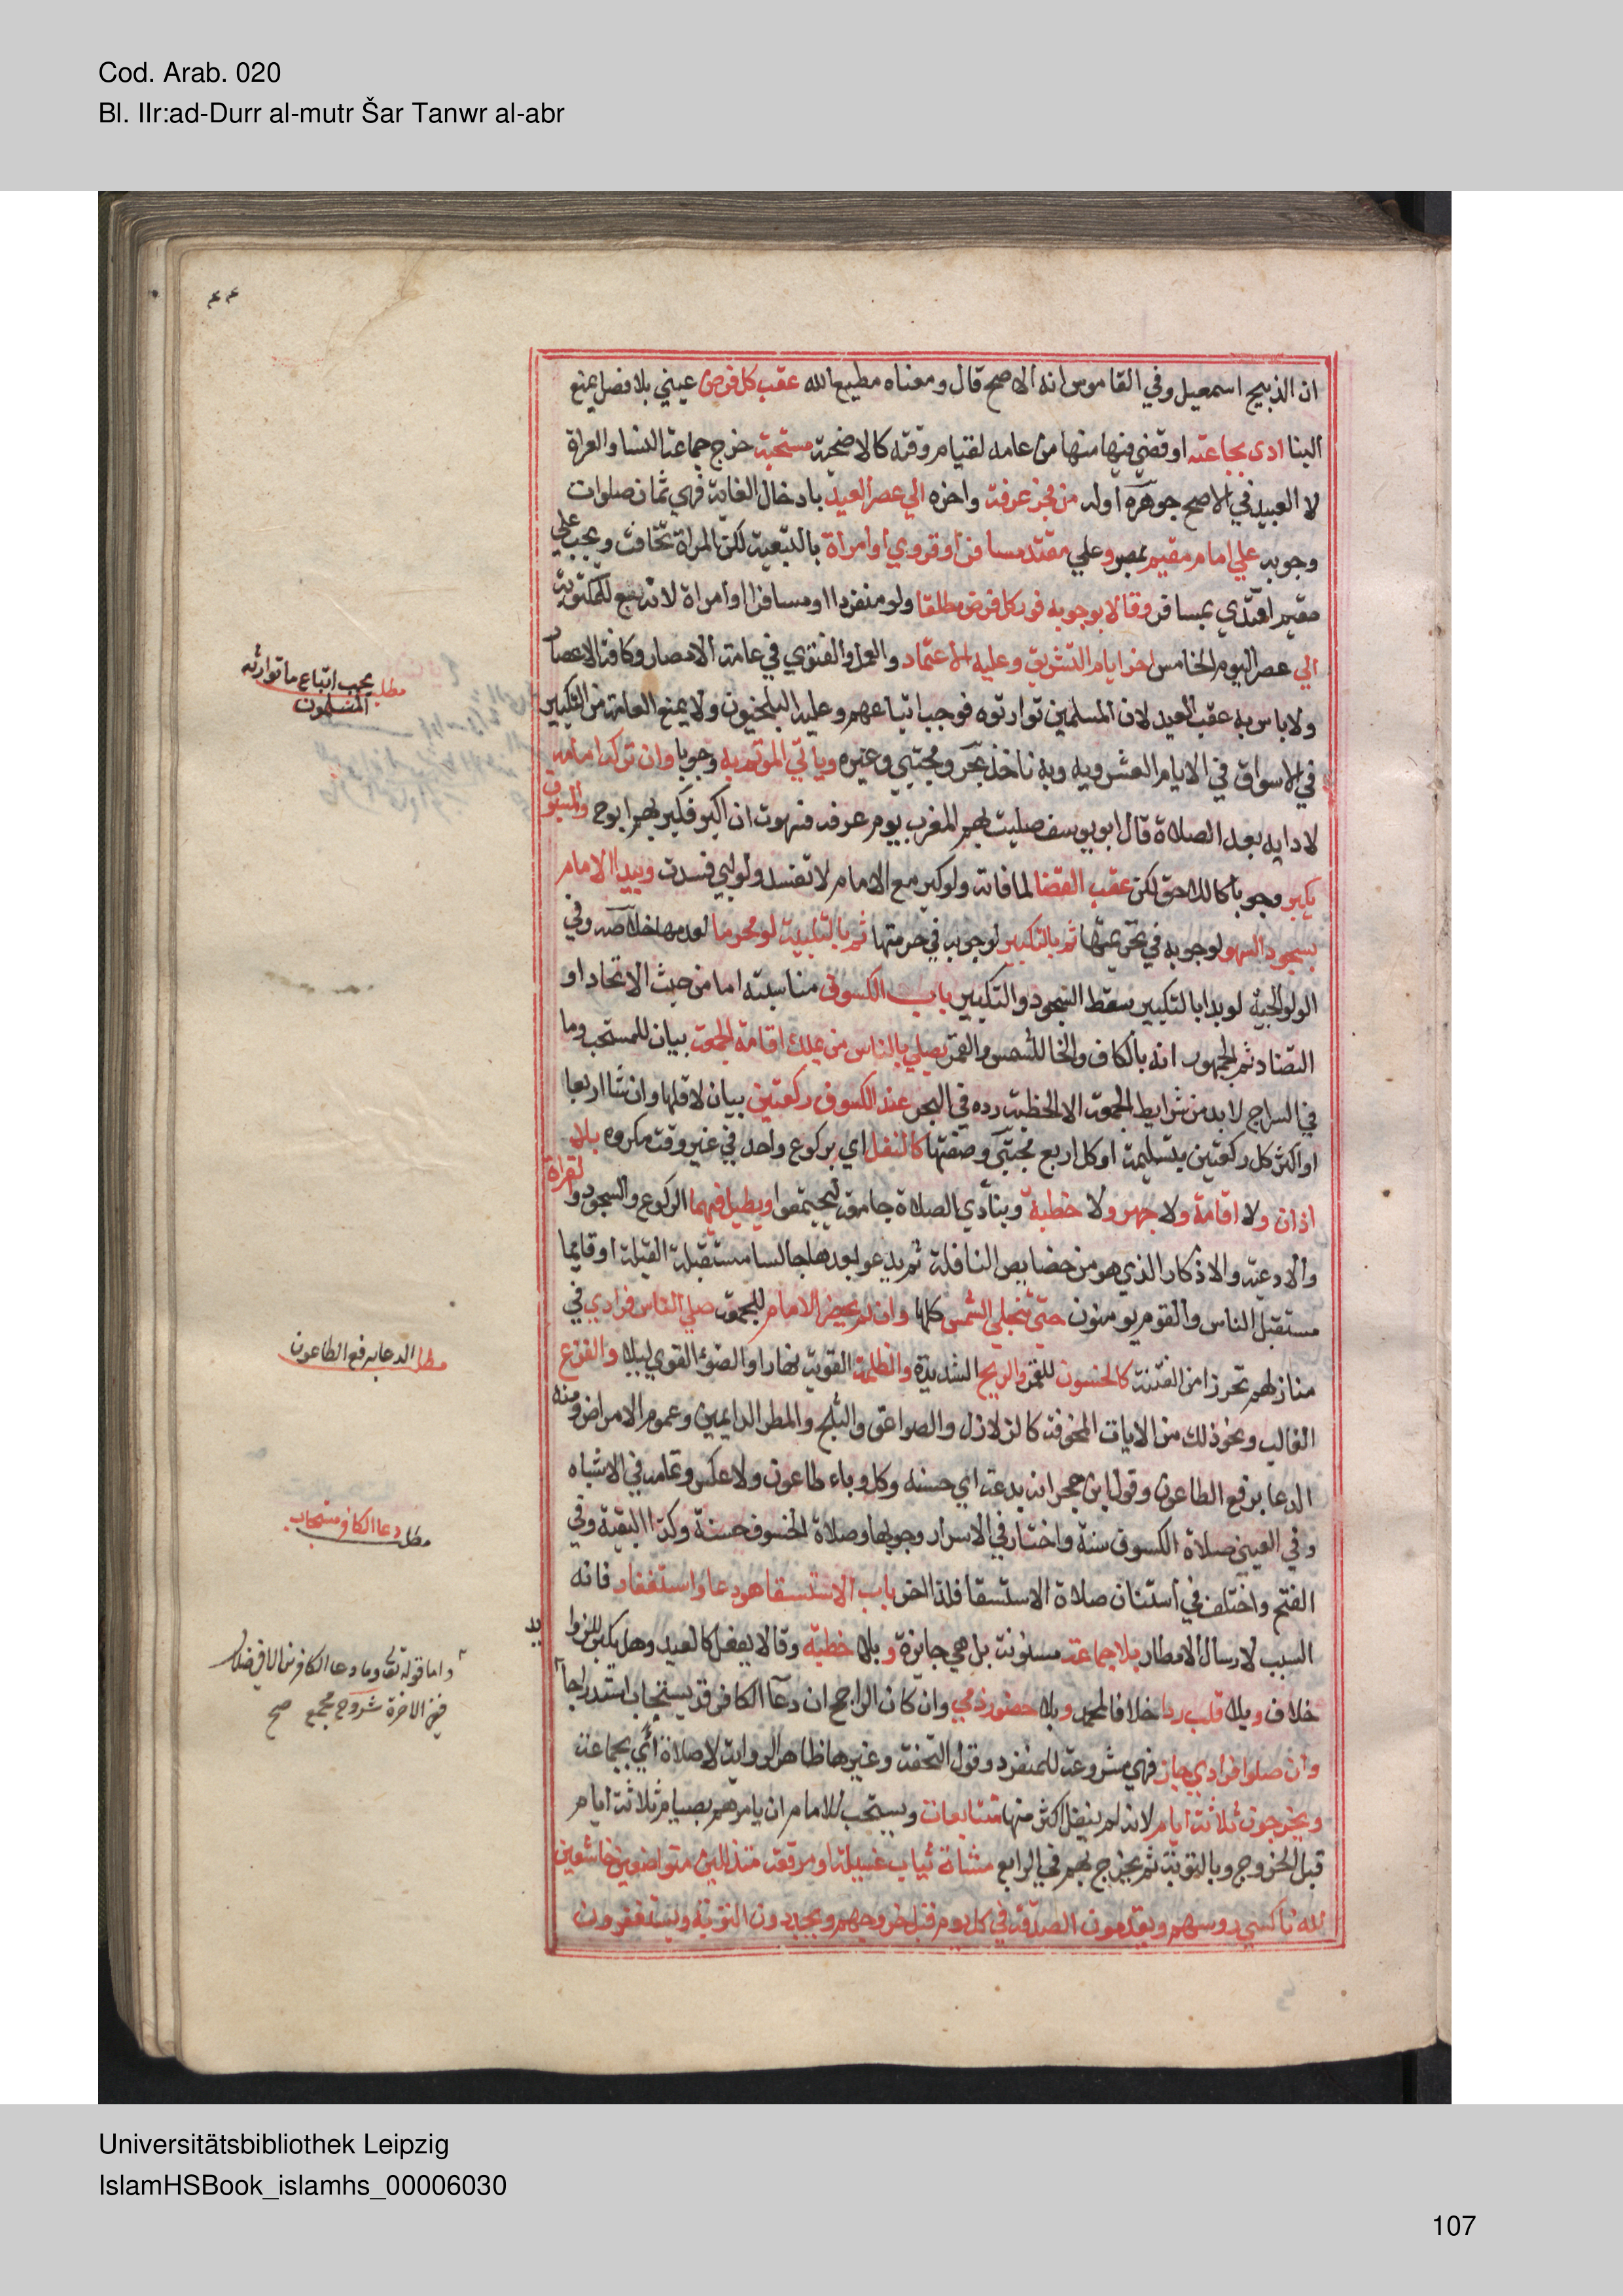 Cod. Arab. 020
Bl. IIr:ad-Durr al-mutr Šar Tanwr al-abr
ان الذبيح اسمعيل وفي القاموس انه الاصح قال ومعناه مطيع الله عقب كل فرض عيني بلا فصل يمنع
البنا ادي بجماعته او قضي فيها منها من عامه لقيام وقته كالاضحية مستحبة خرج جماعة النسا والعراة
لا العبيد في الاصح جوهره اوله من فجر عرفة واخره الي عصر العيد بادخال الغاية فهي ثمان صلوات
وجوبه علي امام مقيم بمصر وعلي مقتد مسافر او قروي او امراة بالتبعية لكن المراة تخافت ويجب علي
مقيم اقتدي بمسافر وقالا بوجوبه فور كل فرض مطلقا ولو منفردا او مسافرا او امراة لانه تبع للمكتوبة
الي عصر اليوم الخامس اخر ايام التشريق وعليه الاعتماد والعمل والفتوي في عامة الامصار وكافة الاعصار
ولا باس به عقب العيد لان المسلمين توارثوه فوجب اتباعهم وعليه البلخيون ولا يمنع العامة من التكبير
في الاسواق في الايام العشر وبه وبه ناخذ بحر ومجتبي وغيره وياتي الموتم به وجوبا وان تركه امامه
لادايه بعد الصلاة قال ابو يوسف صليت بهم المغرب يوم عرفه فسهوت ان اكبر فكبر بهم ابو ح والمسبوق
يكبر وجوبا كاللاحق لكن عقب القضا لما فاته ولو كبر مع الامام لا تفسد ولو لبي فسدت ويبدا الامام
بسجود السهو لوجوبه في تحريمتها ثم بالتكبير لوجوبه في حرمتها ثم بالتلبية لو محرما لعدمها خلاصه وفي
الولوالجية لو بدا بالتكبير سقط السجود والتكبير باب الكسوف مناسبته اما من حيث الاتحاد او
التضاد ثم الجمهور انه بالكاف والخا للشمس والقمر يصلي بالناس من يملك اقامة الجمعة بيان للمستحب وما
في السراج لا بد من شرايط الجمعة الا الخطبة رده في البحر عند الكسوف ركعتين بيان لاقلها وان شا اربعا
او اكثر كل ركعتين بتسليمة او كل اربع مجتبي وصفتها كالنفل اي بركوع واحد في غير وقت مكروه بلا
اذان ولا اقامة ولا جهر ولا خطبة وينادي الصلاة جامعة ليجتمعوا ويطيل فيهما الركوع والسجود والقراة
والادعية والاذكار الذي هو من خصايص النافلة ثم يدعو بعدها جالسا مستقبل القبلة او قايما
مستقبل الناس والقوم يومنون حتي تنجلي الشمس كلها وان لم يحضر الامام للجمعة صلي الناس فرادي في
منازلهم تحرزا من الفتنة كالخسوف للقمر والريح الشديدة والظلمة القوية نهارا والضوء القوي ليلا والفزع
الغالب ونحو ذلك من الايات المخوفة كالزلازل والصواعق والثلج والمطر الدايمين وعموم الامراض ومنه
الدعا برفع الطاعون وقول ابن حجر انه بدعة اي حسنه وكل وباء طاعون ولا عكس وتمامه في الاشباه
وفي العيني صلاة الكسوف سنة واختار في الاسرار وجوبها وصلاة الخسوف حسنة وكذا البقية وفي
الفتح واختلف في استنان صلاة الاستسقا فلذا اخر باب الاستسقا هو دعا واستغفار فانه
السبب لارسال الامطار بلا جماعة مسنونة بل هي جايزة و بلا خطبة وقالا يفعل كالعيد وهل يكبر للزوايد
خلاف وبلا قلب ردا خلافا لمحمد وبلا حضور ذمي وان كان الراجح ان دعا الكافر قد يستجاب استدراجا
وان صلوا فرادي جاز فهي مشروعة للمنفرد وقول التحفة وغيرها ظاهر الرواية لا صلاة اي بجماعة
ويخرجون ثلاثة ايام لانه لم ينقل اكثر منها متتابعات ويستحب للامام ان يامرهم بصيام ثلاثة ايام
قبل الخروج وبالتوبة ثم يخرج بهم في الرابع مشاة ثياب غسيلة او مرقعة متذللين متواضعين خاشعين
لله ناكسي روسهم ويقدمون الصدقة في كل يوم قبل خروجهم ويجددون التوبة ويستغفرون
٤٤
مطلب يجب اتباع ما توارثه
المسلمون
مطلب الدعا برفع الطاعون
مطلب دعا الكافر مستجاب
واما قوله تعا وما دعا الكافرين الا في ضلال
ففي الاخرة شروح مجمع صح
Universitätsbibliothek Leipzig
IslamHSBook_islamhs_00006030
107